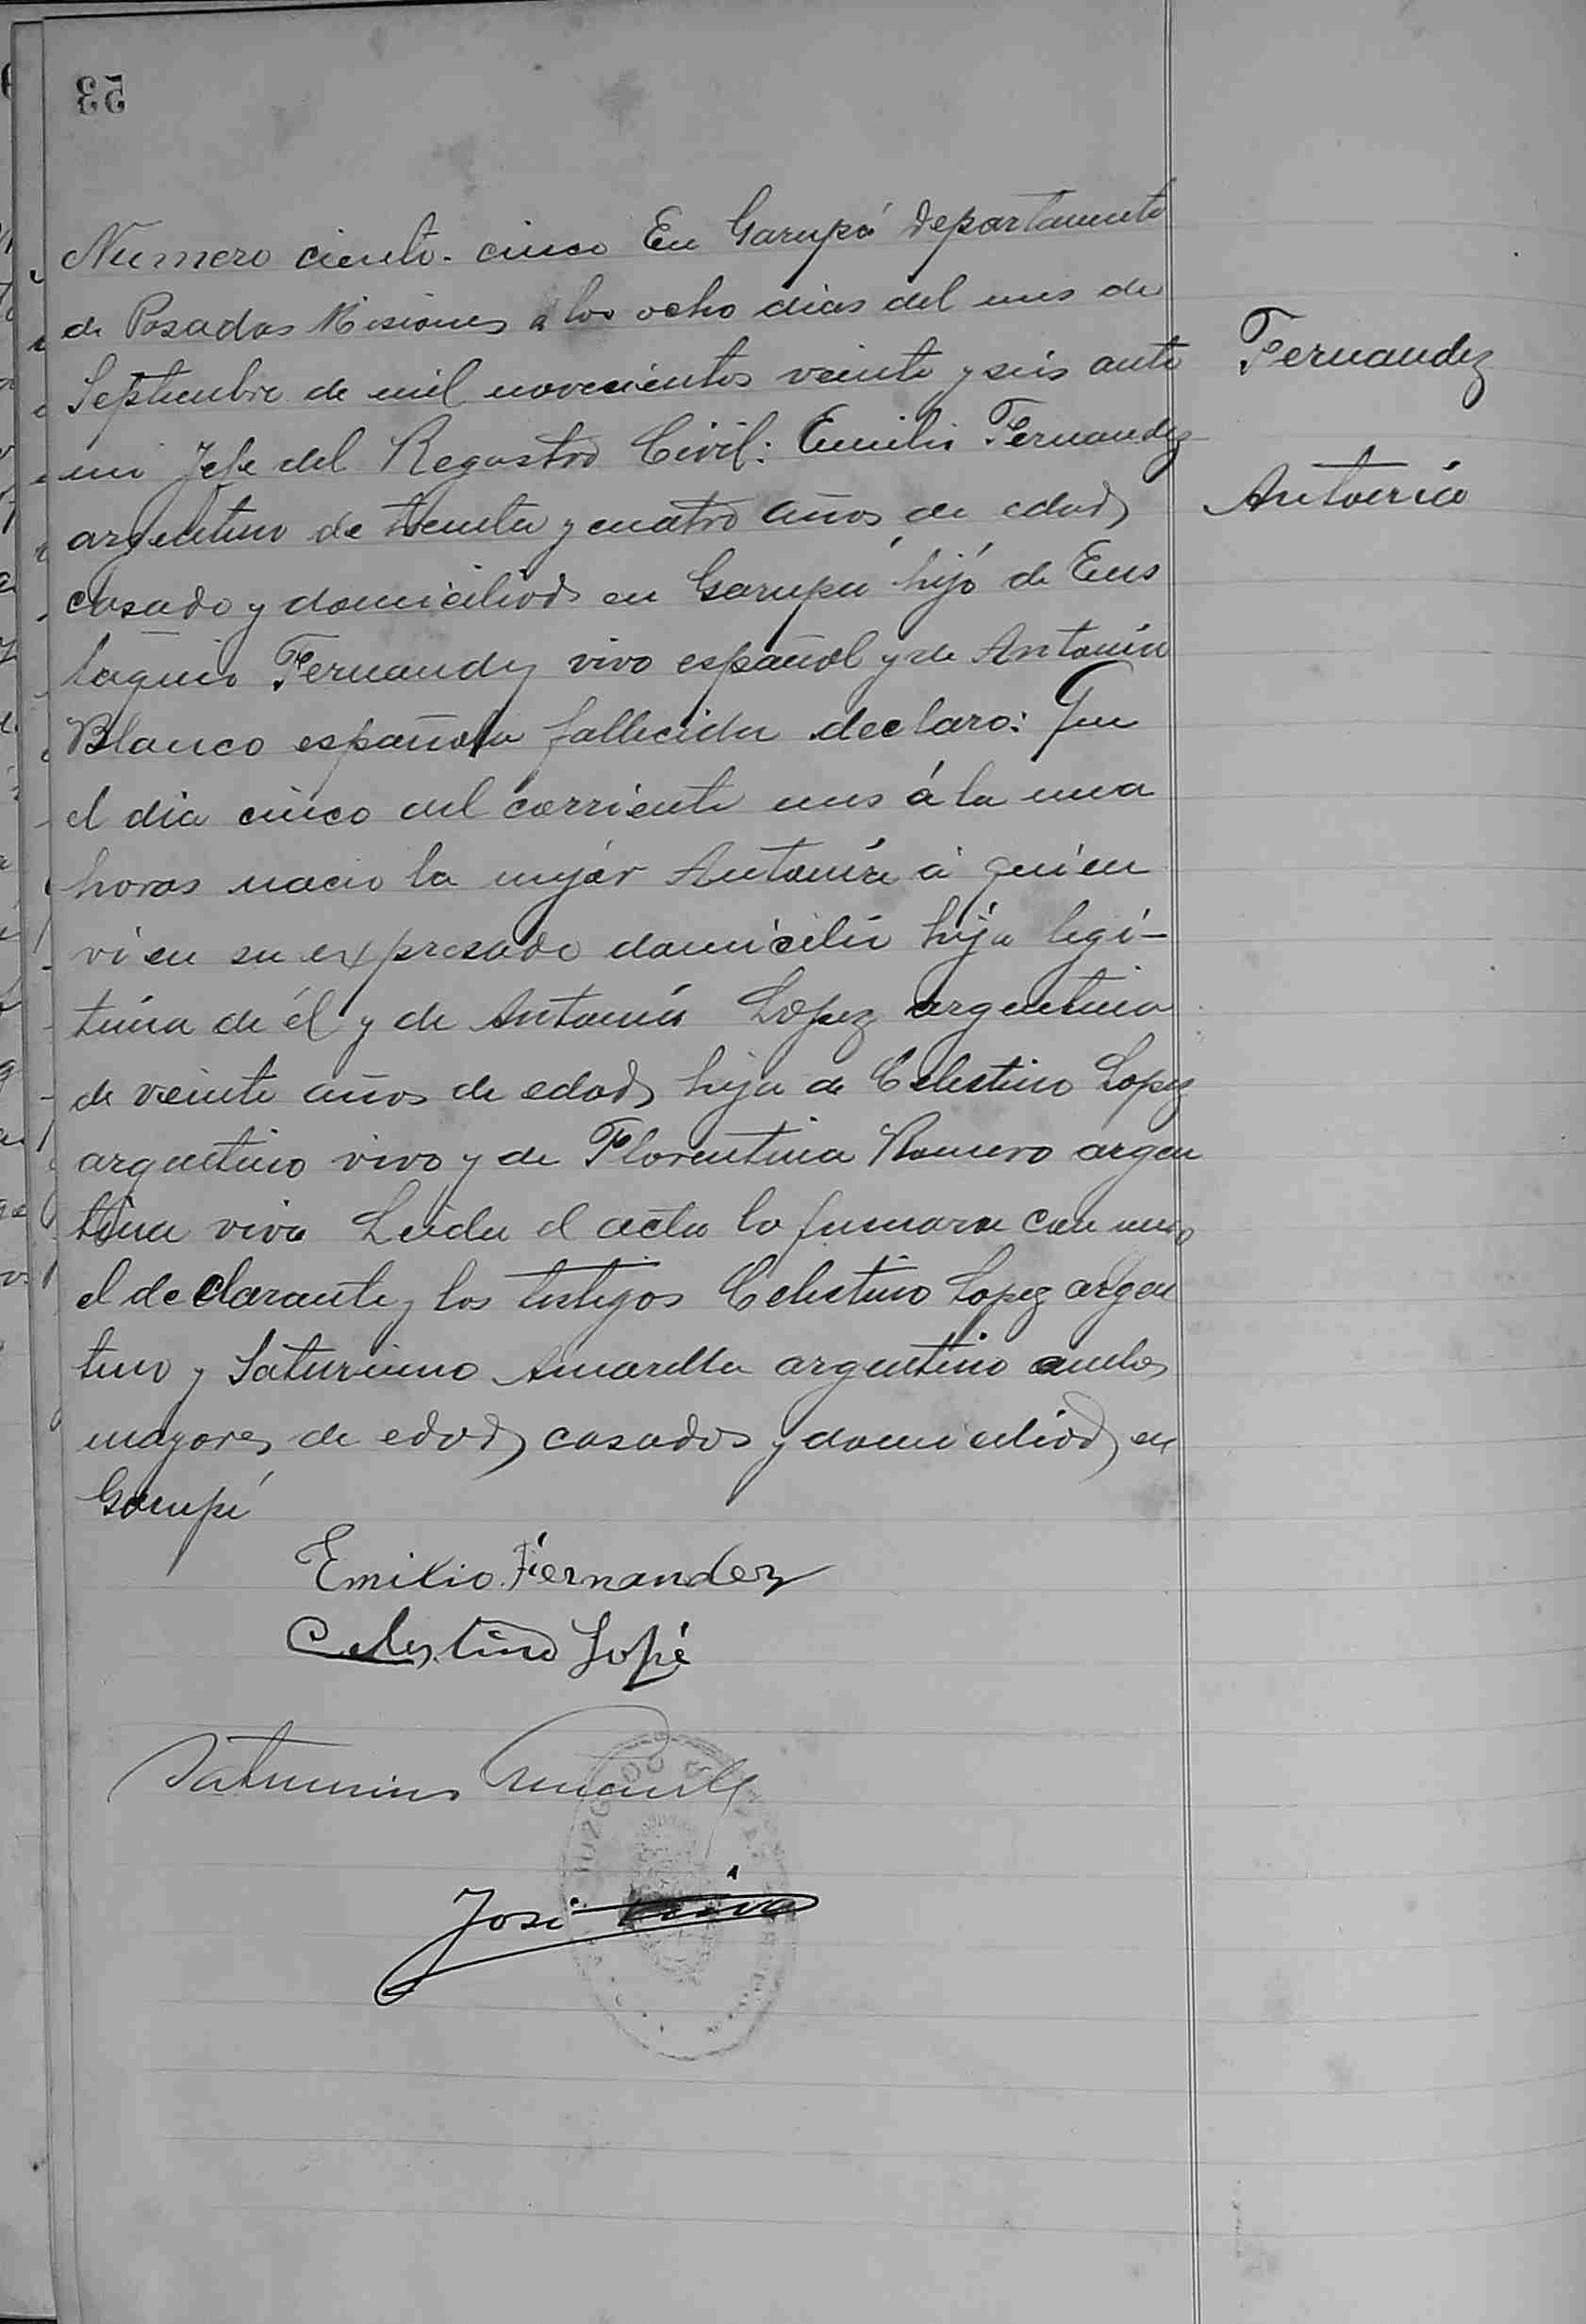 53
Numero ciento cinco En Garupá Departamento
de Posadas Misiones a los ocho dias del mes de
Septiembre de mil novecientos veinte y seis ante
mi Jefe del Registro Civil: Emilio Fernandez
argentino de treinta y cuatro años de edad
casado y domiciliado en Garupá hijo de Eus
taquio Fernandez vivo español y de Antonia
Blanco española fallecida declaro: Que
el dia cinco del corriente mes á la una
horas nacio la mujer Antonia á quien
vi en su expresado domicilio hija legi-
tima de él y de Antonia Lopez argentina
de veinte años de edad hija de Celestino Lopez
argentino vivo y de Florentina Romero argen
tina viva Leida el acta la firmaron con migo
el declarante y los testigos Celestino Lopez argen
tino y Saturnino Amarilla argentino ambos
mayores de edad casados y domiciliados en
Garupá
Fernandez
Antonia
Emilio Fernandez
Celestino Lopé
Saturnino Amarilla
José